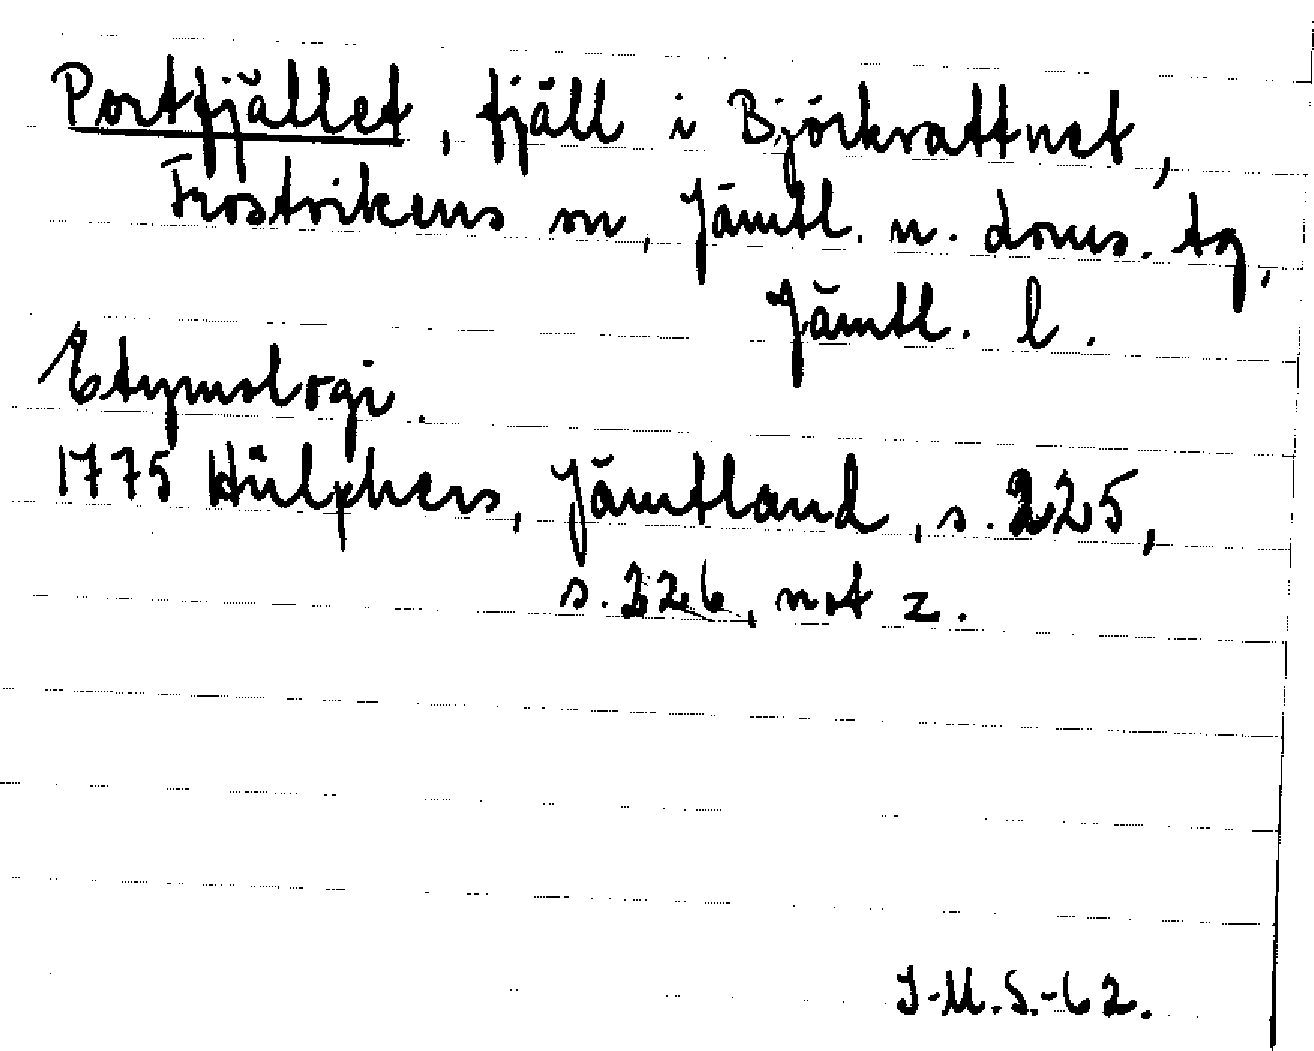 Portfjället, fjäll i Björkvattnet,
Frostvikens sn, Jämtl. n. doms. tg,
Jämtl. l.
Etymologi.
1775 Hülphers, Jämtland, s. 225,
s. 226, not z.
I-M.S.-62.